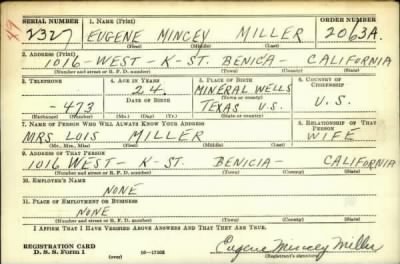 SERIAL NUMBER 1. NAME (Print) ORDER NUMBER
49
2327 EUGENE MINCEY MILLER 2063A.
(First) (Middle) (Last)
2. ADDRESS (Print)
1016-WEST-K-ST. BENICA- CALIFORNIA
(Number and street or R. F. D. number) (Town) (County) (State)
3. TELEPHONE 4. AGE IN YEARS 5. PLACE OF BIRTH 6. COUNTRY OF CITIZENSHIP
24. MINERAL WELLS
DATE OF BIRTH (Town or county)
-473 TEXAS U.S. U.S.
(Exchange) (Number) (Mo.) (Day) (Yr.) (State or country)
7. NAME OF PERSON WHO WILL ALWAYS KNOW YOUR ADDRESS 8. RELATIONSHIP OF THAT PERSON
MRS LOIS MILLER WIFE
(Mr., Mrs., Miss) (First) (Middle) (Last)
9. ADDRESS OF THAT PERSON
1016 WEST- K-ST. BENICIA- CALIFORNIA
(Number and street or R. F. D. number) (Town) (County) (State)
10. EMPLOYER'S NAME
NONE
11. PLACE OF EMPLOYMENT OR BUSINESS
NONE
(Number and street or R. F. D. number) (Town) (County) (State)
I AFFIRM THAT I HAVE VERIFIED ABOVE ANSWERS AND THAT THEY ARE TRUE.
REGISTRATION CARD
D. S. S. Form 1 (over) 16-17105 Eugene Mincey Miller
(Registrant's signature)